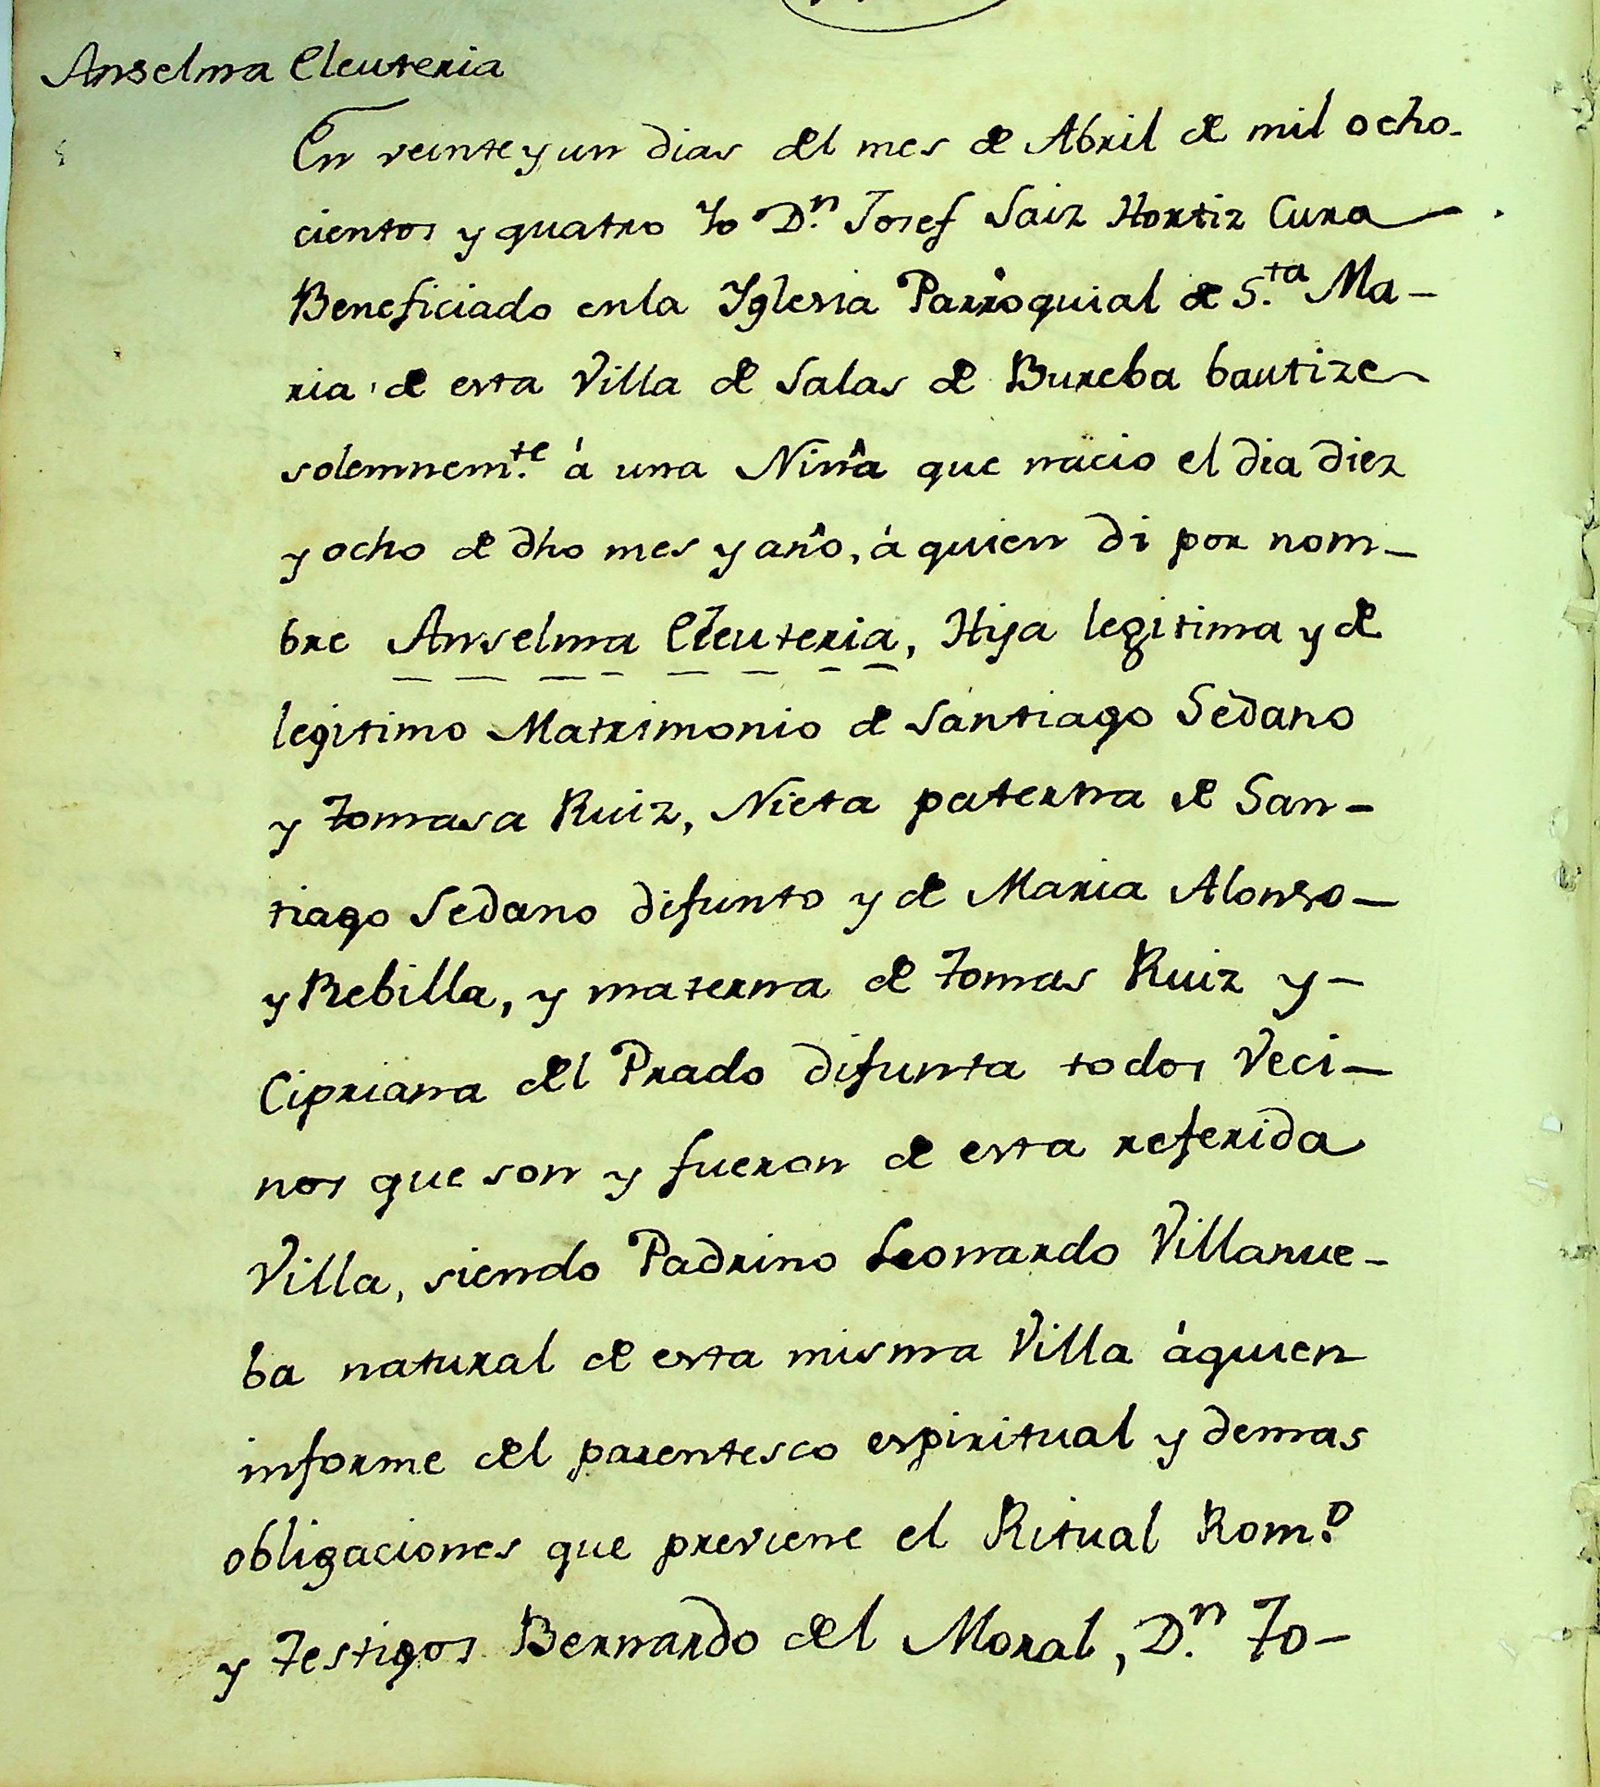 Anselma Eleuteria
En veinte y un dias del mes de Abril de mil ocho-
cientos y quatro Yo D.n Josef Saiz Hortiz Cura
Beneficiado en la Yglesia Parroquial de S.ta Ma-
ria de esta Villa de Salas de Bureba bautize
solemnem.te á una Niña que nacio el dia diez
y ocho de dho mes y año, á quien di por nom-
bre Anselma Eleuteria, Hija legitima y de
legitimo Matrimonio de Santiago Sedano
y Tomasa Ruiz, Nieta paterna de San-
tiago Sedano difunto y de Maria Alonso
y Rebilla, y materna de Tomas Ruiz y
Cipriana del Prado difunta todos Veci-
nos que son y fueron de esta referida
Villa, siendo Padrino Leonardo Villanue-
ba natural de esta misma Villa á quien
informe del parentesco espiritual y demas
obligaciones que previene el Ritual Rom.o
y Testigos Bernardo del Moral, D.n To-